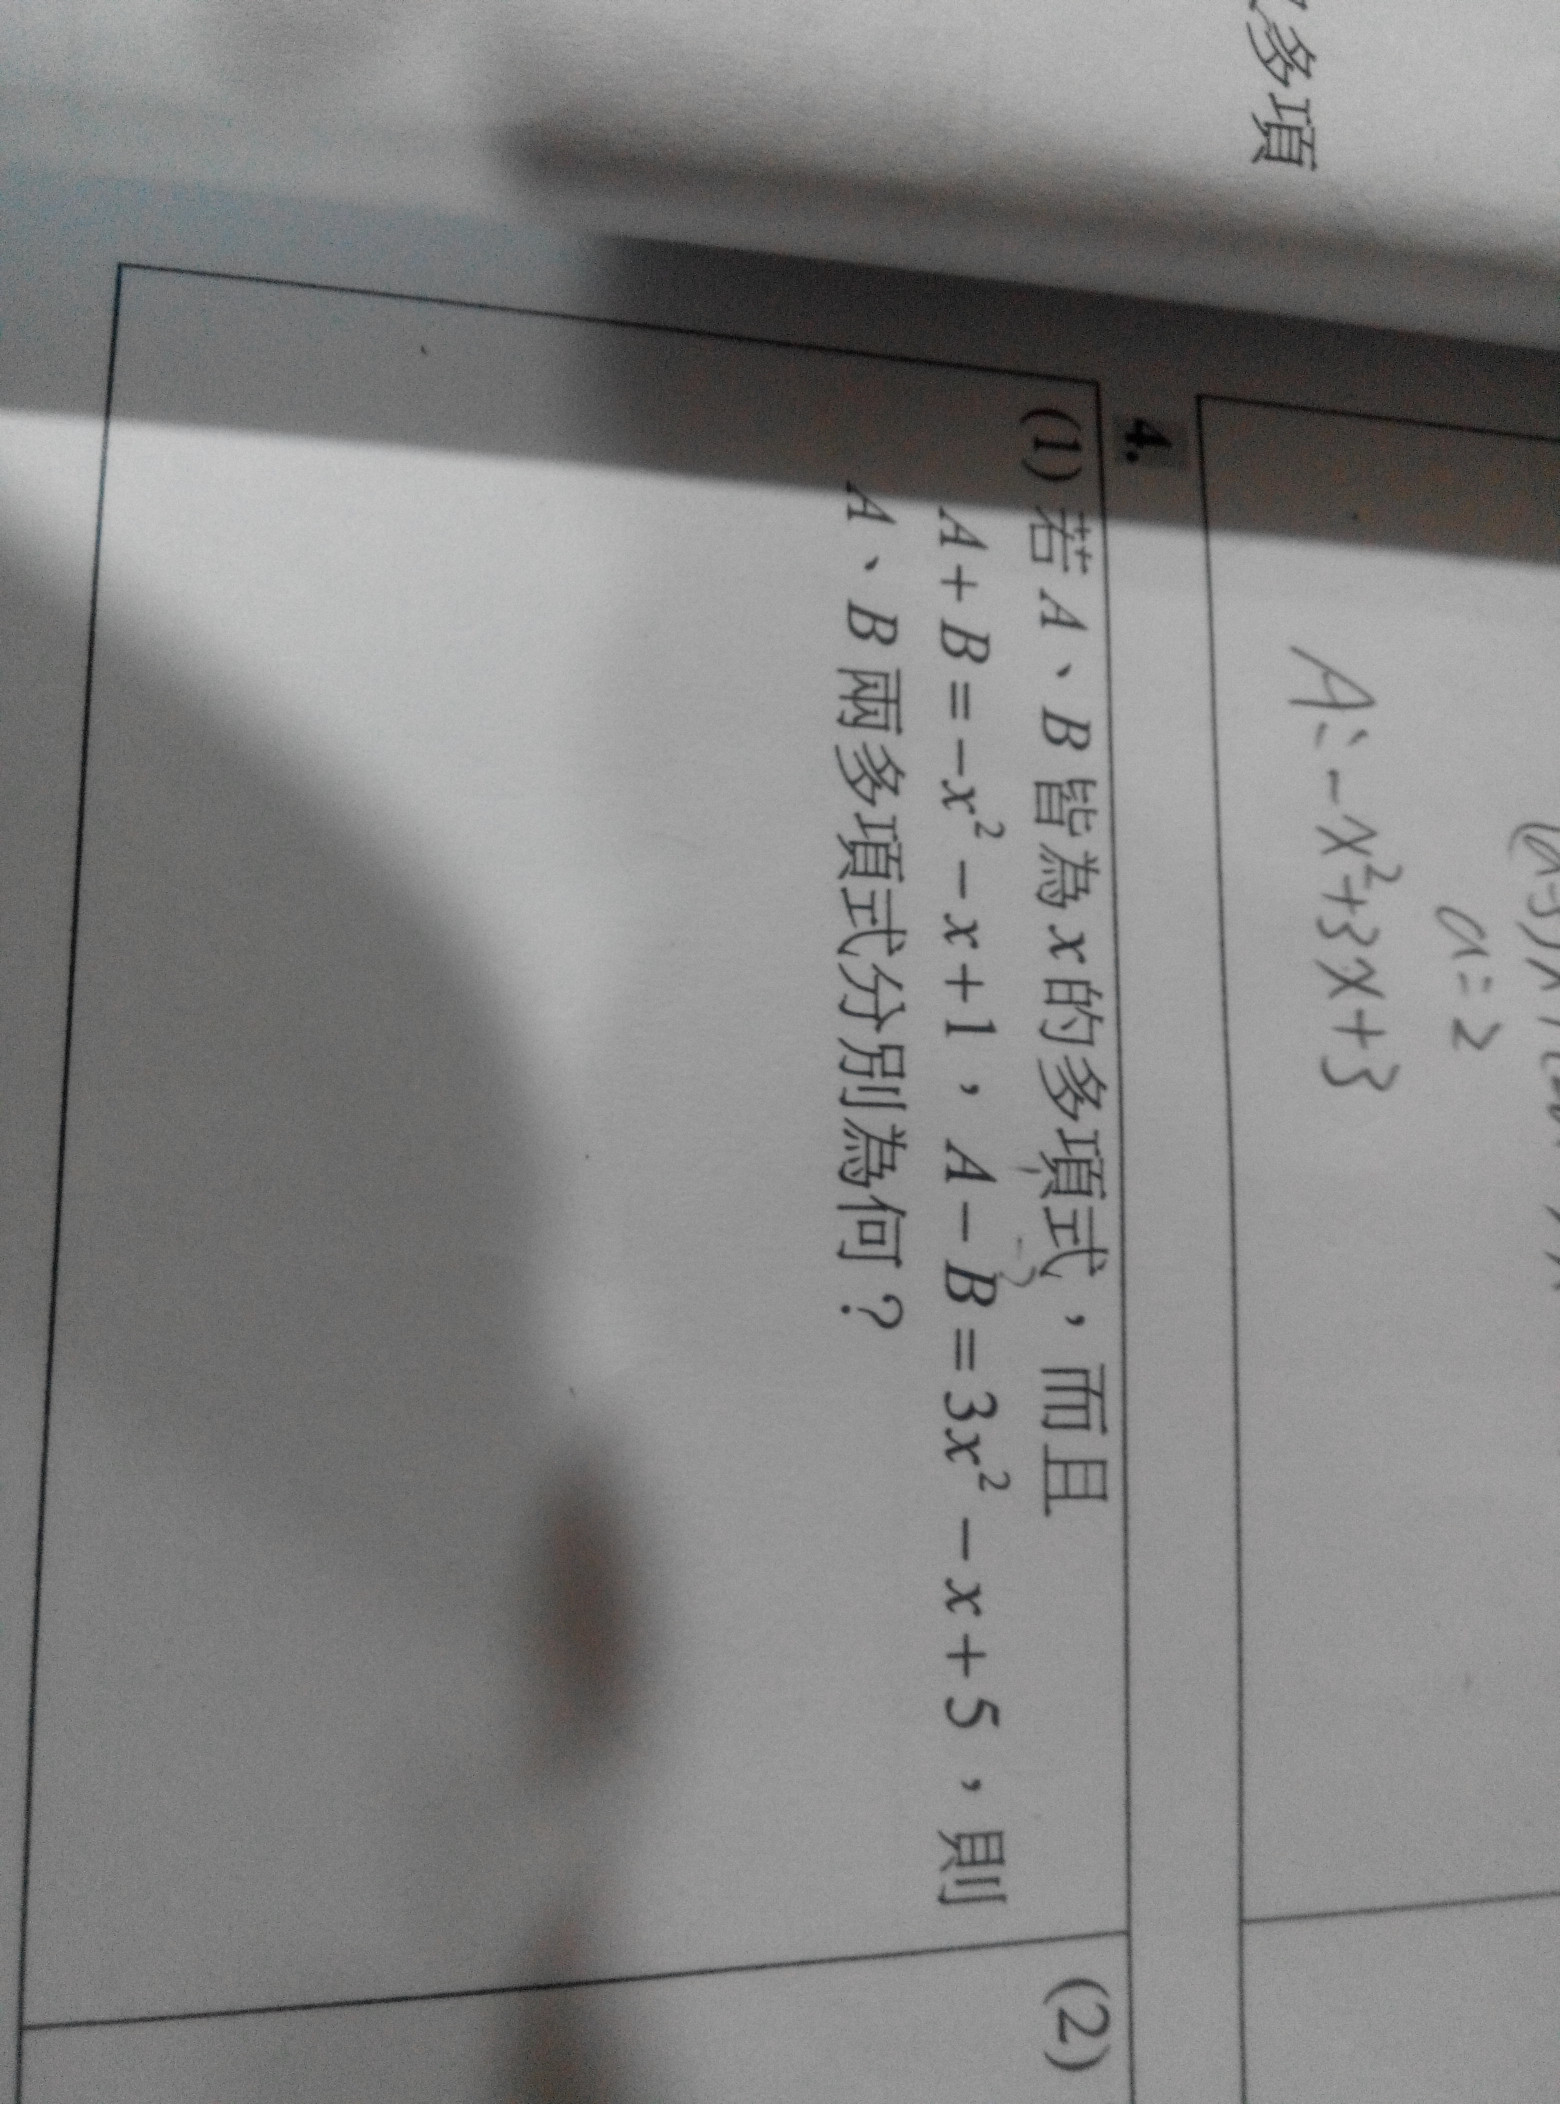 多項
a=2
A：-x²+3x+3
4.
(1) 若A、B皆為x的多項式，而且
A+B=-x²-x+1，A-B=3x²-x+5，則
A、B兩多項式分別為何？
(2)